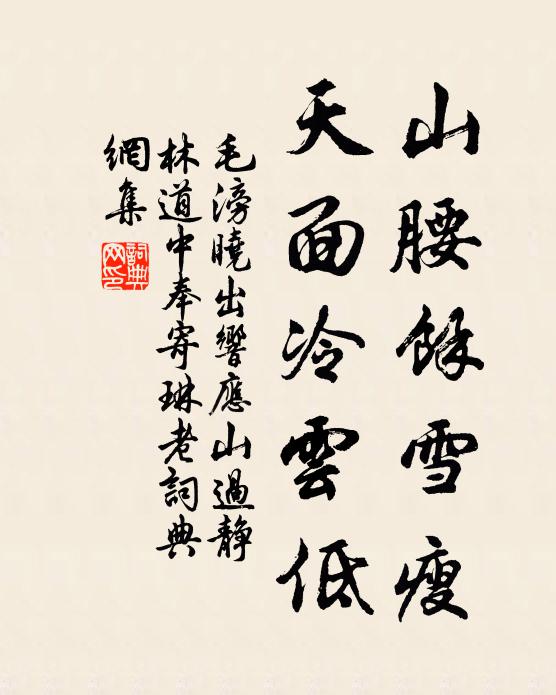 山腰餘雪瘦
天面冷雲低
毛滂曉出響應山過靜
林道中奉寄琳老詞典
網集
詞典
网印